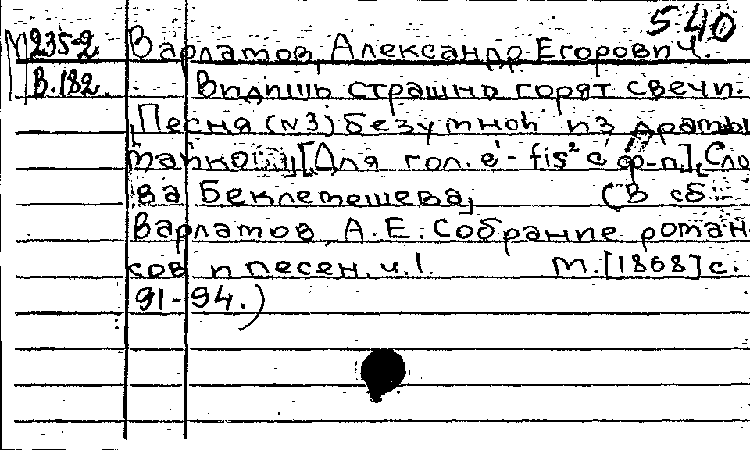 540
М235-2 Варламов, Александр Егорович.
В.182. Видишь страшно горят свечи.
Песня (N3) безумной из драмы
Майко [Для гол. e¹-fis² с ф-п.], Сло
ва Беклемешева, (В сб.:
Варламов, А.Е. Собрание роман
сов и песен. ч.1. М. [1868] с.
91-94.)